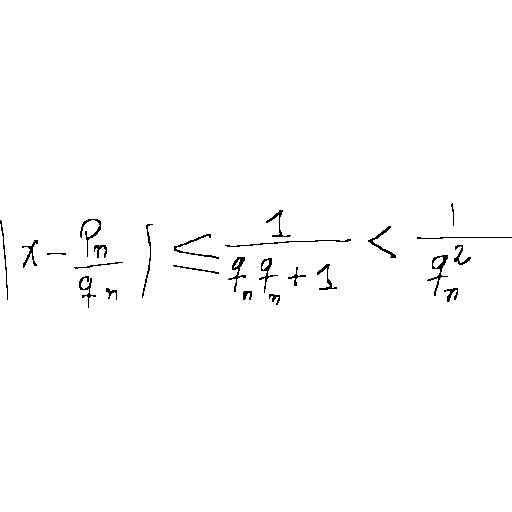 $\left| x - \frac{p_n}{q_n} \right| \leqq \frac{1}{q_n q_n + 1} < \frac{1}{q_n^2}$